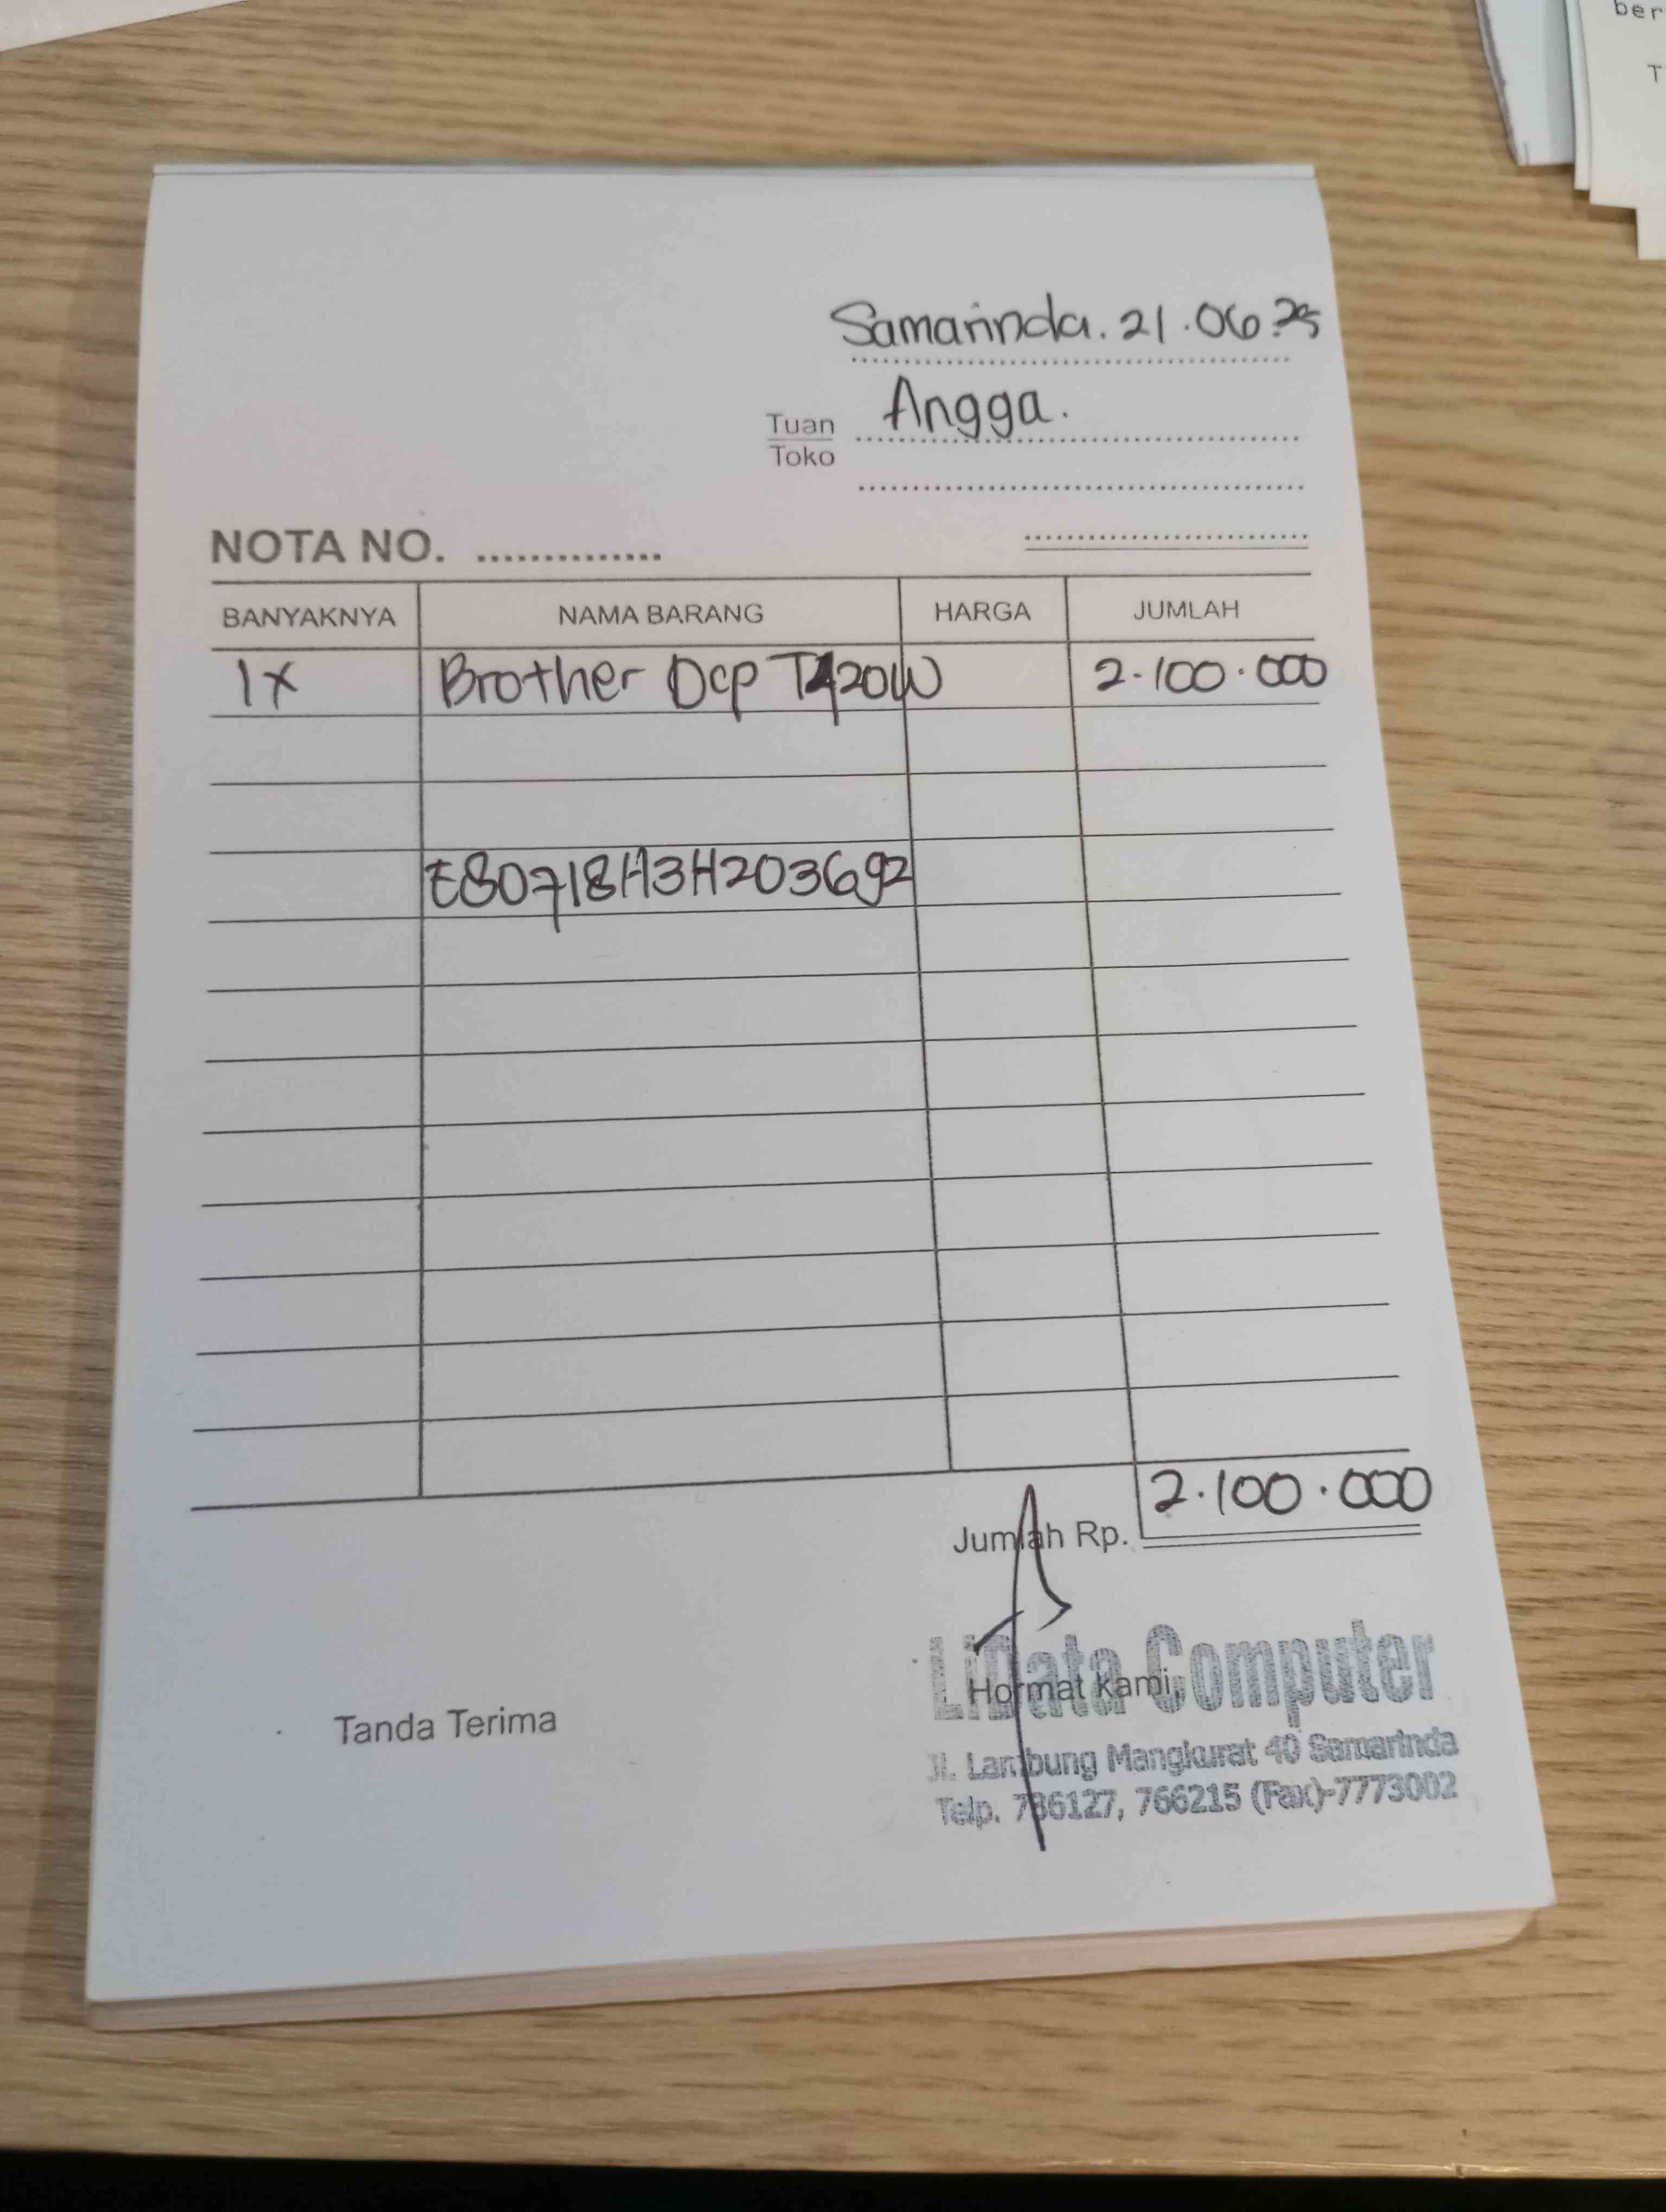 ber
T
Samarinda. 21.06.25
Tuan Angga.
Toko
NOTA NO. ..............
BANYAKNYA NAMA BARANG HARGA JUMLAH
1x Brother Dcp T420W 2.100.000
E80718H3H203692
Jumlah Rp. 2.100.000
Tanda Terima Hormat kami,
LiData Computer
Jl. Lambung Mangkurat 40 Samarinda
Telp. 736127, 766215 (Fax)-7773002